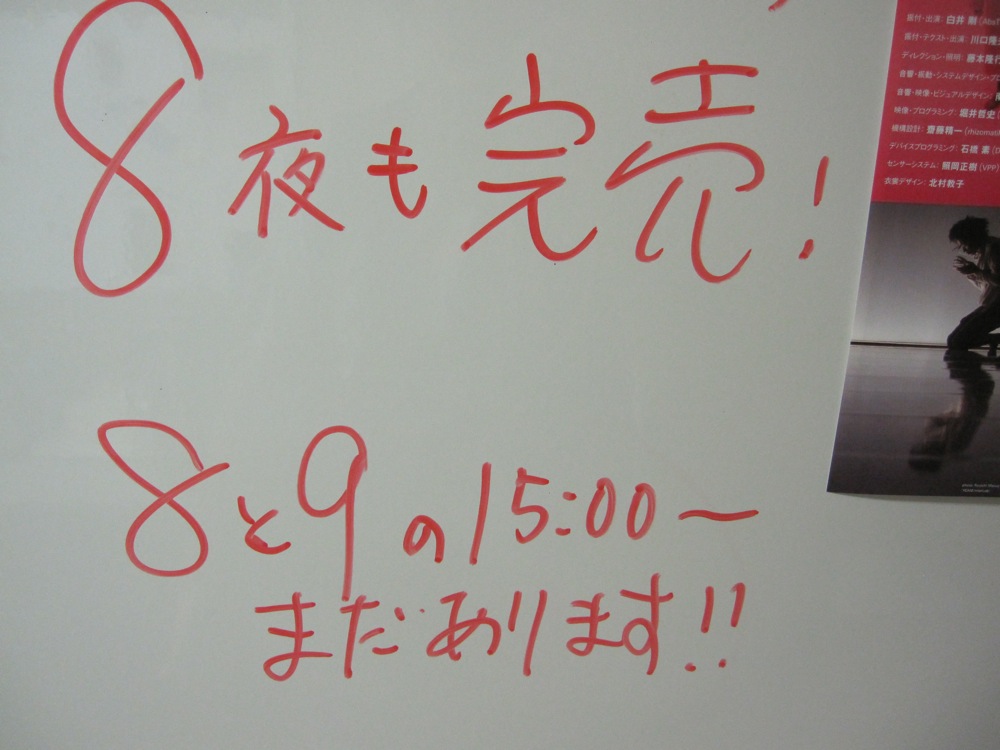 8夜も完売!
8と9の15:00〜
まだあります!!
振付・出演：白井 剛
振付・テクスト・出演：川口隆
ディレクション・照明：藤本隆行
音響・振動・システムデザイン・プロ
音響・映像・ビジュアルデザイン：
映像・プログラミング：堀井哲史
機構設計：齋藤精一(rhizomati
デバイスプログラミング：石橋 素
センサーシステム：照岡正樹(VPP)
衣裳デザイン：北村教子